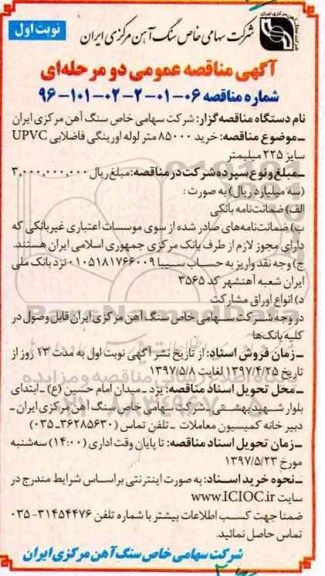 نوبت اول
شرکت سهامی خاص سنگ آهن مرکزی ایران
آگهی مناقصه عمومی دو مرحله‌ای
شماره مناقصه ۰۶-۰۱-۲-۰۲-۱۰۱-۹۶
نام دستگاه مناقصه گزار: شرکت سهامی خاص سنگ آهن مرکزی ایران
ـ موضوع مناقصه: خرید ۸۵۰۰۰ متر لوله اورینگی فاضلابی UPVC
سایز ۲۲۵ میلیمتر
ـ مبلغ و نوع سپرده شرکت در مناقصه: مبلغ ریال ۳,۰۰۰,۰۰۰,۰۰۰
(سه میلیارد ریال) به صورت:
الف) ضمانت‌نامه بانکی
ب) ضمانت‌نامه‌های صادر شده از سوی موسسات اعتباری غیربانکی که
دارای مجوز لازم از طرف بانک مرکزی جمهوری اسلامی ایران هستند.
ج) وجه نقد واریز به حساب سیبا ۰۱۰۵۱۸۱۷۶۶۰۰۹ نزد بانک ملی
ایران شعبه آهنشهر کد ۳۵۶۵
د) انواع اوراق مشارکت
در وجه شرکت سهامی خاص سنگ آهن مرکزی ایران قابل وصول در
کلیه بانک‌ها
ـ زمان فروش اسناد: از تاریخ نشر آگهی نوبت اول به مدت ۱۳ روز از
تاریخ ۱۳۹۷/۴/۲۵ لغایت ۱۳۹۷/۵/۸
ـ محل تحویل اسناد مناقصه: یزد ـ میدان امام حسین (ع) ـ ابتدای
بلوار شهید بهشتی ـ شرکت سهامی خاص سنگ آهن مرکزی ایران ـ
دبیرخانه کمیسیون معاملات ـ تلفن تماس (۳۶۲۸۵۶۳۰-۰۳۵)
ـ زمان تحویل اسناد مناقصه: تا پایان وقت اداری (۱۴:۰۰) سه‌شنبه
مورخ ۱۳۹۷/۵/۲۳
ـ نحوه خرید اسناد: به صورت اینترنتی براساس شرایط مندرج در
سایت www.ICIOC.ir
ضمنا جهت کسب اطلاعات بیشتر با شماره تلفن ۳۱۴۵۴۴۷۶-۰۳۵
تماس حاصل نمائید.
شرکت سهامی خاص سنگ آهن مرکزی ایران